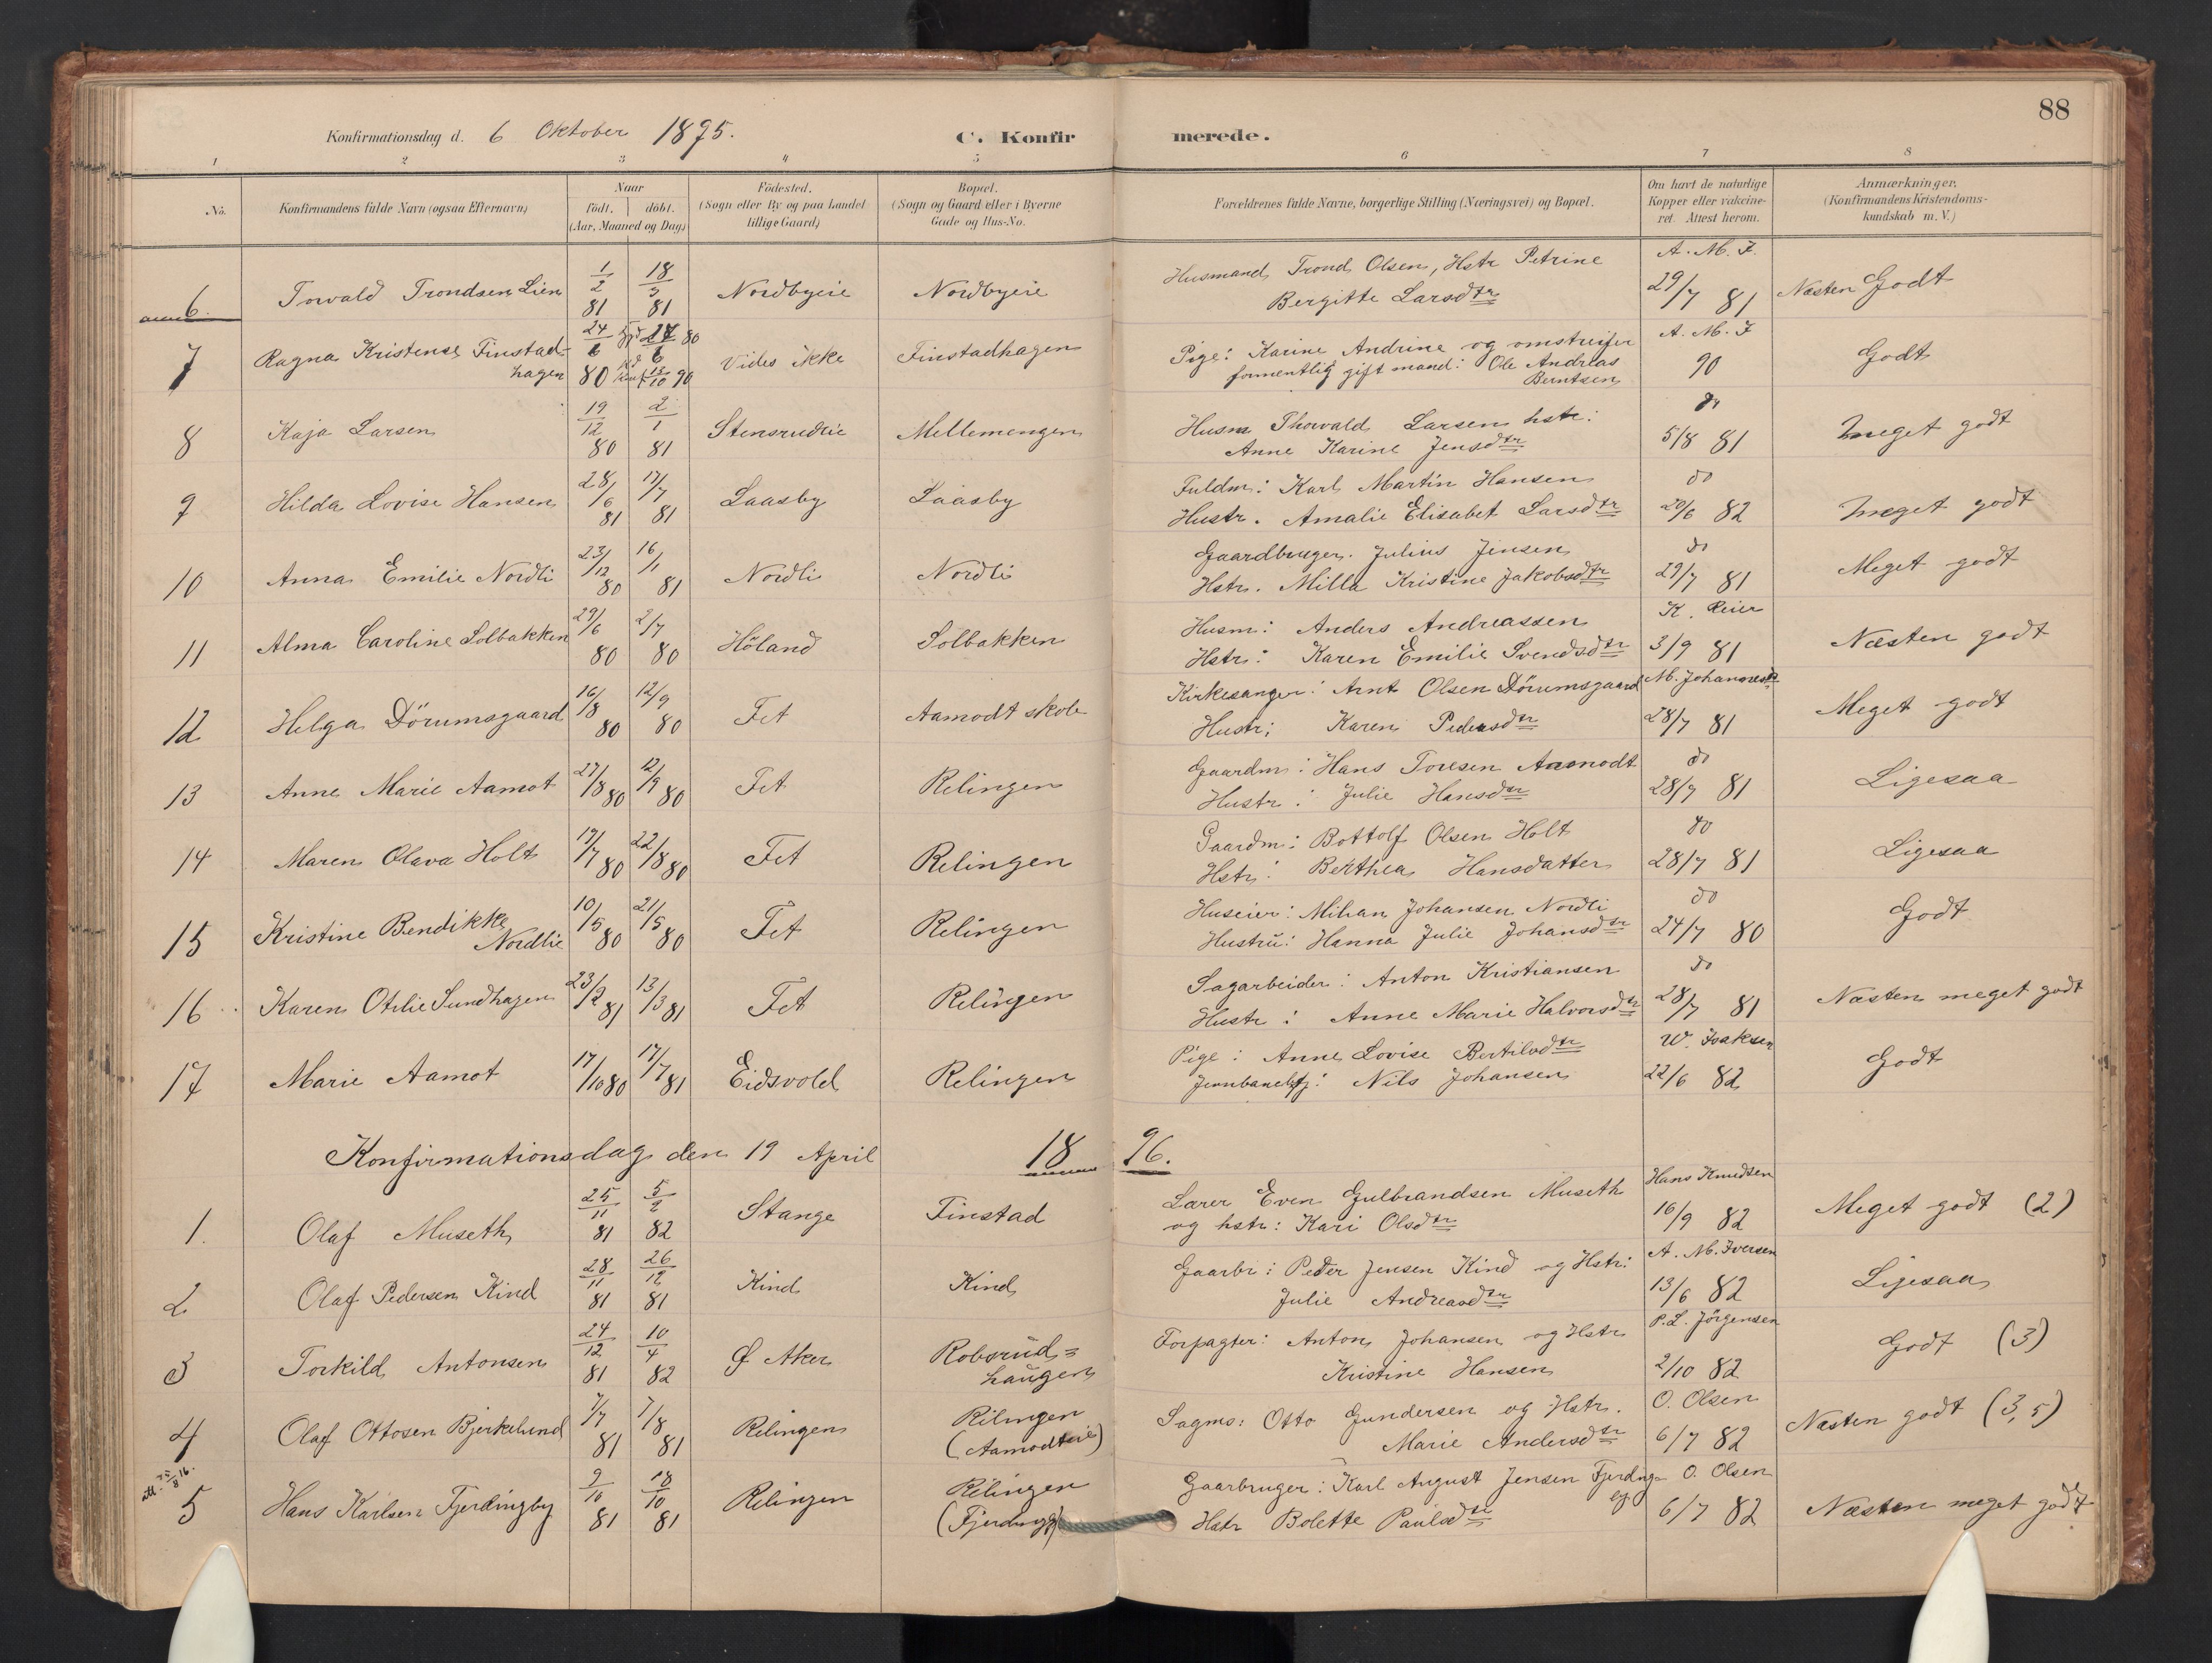 88
Konfirmationsdag d. 6 Oktober 1895. C. Konfirmerede.
1 2 3 4 5 6 7 8
No. Konfirmandens fulde Navn (ogsaa Efternavn) Naar født. døbt. (Aar, Maaned og Dag) Födested. (Sogn eller By og paa Landet tillige Gaard) Bopæl. (Sogn og Gaard eller i Byerne Gade og Hus-No. Forældrenes fulde Navne, borgerlige Stilling (Næringsvei) og Bopæl. Om havt de naturlige Kopper eller vakcineret. Attest herom. Anmærkninger. (Konfirmandens Kristendomskundskab m. V.)
6. Torvald Trondsen Lien 1/2 81 18/3 81 Nordbyeie Nordbyeie Husmand Trond Olsen, Hstr Petrine
Bergitte Larsdtr A. M. I. 29/7 81 Næsten Godt
7 Ragna Kristense Finstad-
hagen 24/6 80 27/6 80 13/10 90 Vides ikke Finstadhagen Pige: Karine Andrine og omstreifer
formentlig gift mand: Ole Andreas
Berntsen A. M. I 90 Godt
8 Kaja Larsen 19/12 80 2/1 81 Stensrudeie Mellemengen Husm Thorvald Larsen hstr:
Anne Karine Jensdtr do 5/8 81 meget godt
9 Hilda Lovise Hansen 28/6 81 17/7 81 Laasby Laasby Fuldm: Karl Martin Hansen
Hustr. Amalie Elisabet Larsdtr do 20/6 82 meget godt
10 Anna Emilie Nordli 23/12 80 16/1 81 Nordli Nordli Gaardbruger. Julius Jensen
Hstr. Milla Kristine Jakobsdtr do 29/7 81 Meget godt
11 Alma Caroline Solbakken 29/6 80 2/7 80 Höland Solbakken Husm: Anders Andreassen
Hstr: Karen Emilie Svendsdtr K. Reier 3/9 81 Næsten godt
12 Helga Dörumsgaard 16/8 80 12/9 80 Fet Aamodt skole Kirkesanger: Arnt Olsen Dörumsgaard
Hustr: Karen Pedersdtr 28/7 81 Meget godt
13 Anne Marie Aamot 27/8 80 12/9 80 Fet Relingen Gaardm: Hans Toresen Aamodt
Hustr: Julie Hansdtr do 28/7 81 Ligesaa
14 Maren Olava Holt 17/7 80 22/8 80 Fet Relingen Gaardm: Bottolf Olsen Holt
Hstr: Berthea Hansdatter do 28/7 81 Ligesaa
15 Kristine Bendikke
Nordlie 10/5 80 21/5 80 Fet Relingen Huseier: Mihan Johansen Nordli
Hustru: Hanna Julie Johansdtr do 24/7 80 Godt
16 Karen Otilie Sundhagen 23/2 81 13/3 81 Fet Relingen Sagarbeider: Anton Kristiansen
Hustr: Anne Marie Halvorsdtr do 28/7 81 Næsten meget godt
17 Marie Aamot 17/10 80 17/7 81 Eidsvold Relingen Pige: Anne Lovise Bertilsdtr
Nils Johansen W. Isaksen 22/6 82 Godt
Konfirmationsdag den 19 April 1896.
1. Olaf Museth 25/11 81 5/2 82 Stange Finstad Lærer Even Gulbrandsen Museth
og hstr: Kari Olsdtr Hans Knudsen 16/9 82 Meget godt (2)
2 Olaf Pedersen Kind 28/11 81 26/12 81 Kind Kind Gaarbr: Peder Jensen Kind og Hstr:
Julie Andreasdtr A. M. Iversen 13/6 82 Ligesaa
3 Torkild Antonsen 24/12 81 10/4 82 Ø Aker Robsrud=
haugen Forpagter: Anton Johansen og Hstr
Kristine Hansen P. L. Jörgensen 2/10 82 Godt (3)
4 Olaf Ottosen Bjerkelund 7/7 81 7/8 81 Relingen Relingen
(Aamodteie) Sagms: Otto Gundersen og Hstr.
Marie Andersdtr O. Olsen 6/7 82 Næsten godt (3, 5)
5 Hans Karlsen Fjerdingby 9/10 81 18/10 81 Relingen Relingen
(Fjerdingb) Gaarbruger: Karl August Jensen Fjerding
by
Hstr Bolette Paulsdtr O. Olsen 6/7 82 Næsten meget godt